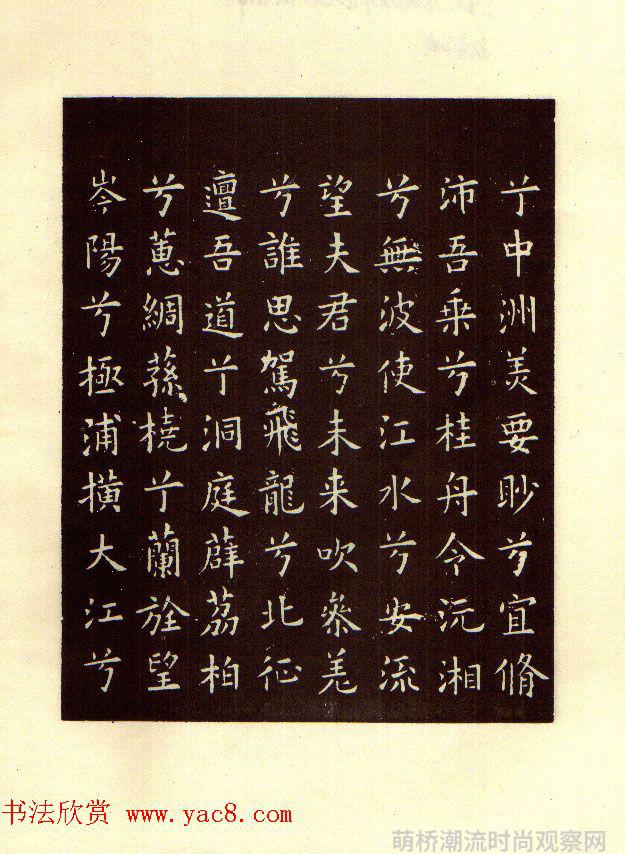 亍中洲美要眇兮宜脩
沛吾乗兮桂舟令沅湘
兮無波使江水兮安流
望夫君兮未来吹參羌
兮誰思駕飛龍兮北征
邅吾道亍洞庭薜荔柏
兮蕙綢蓀橈亍蘭旌望
岑陽兮極浦橫大江兮
书法欣赏 www.yac8.com
萌桥潮流时尚观察网